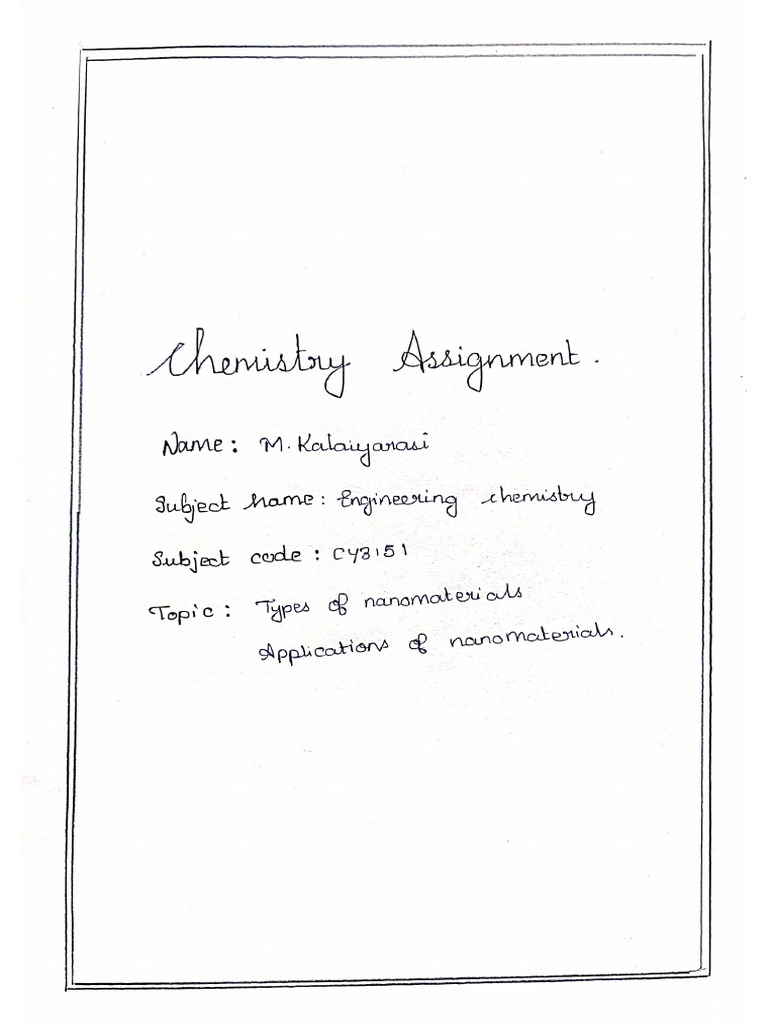 Chemistry Assignment.
Name: M. Kalaiyarasi
Subject Name: Engineering chemistry
Subject code: CY3151
Topic: Types of nanomaterials
Applications of nanomaterials.